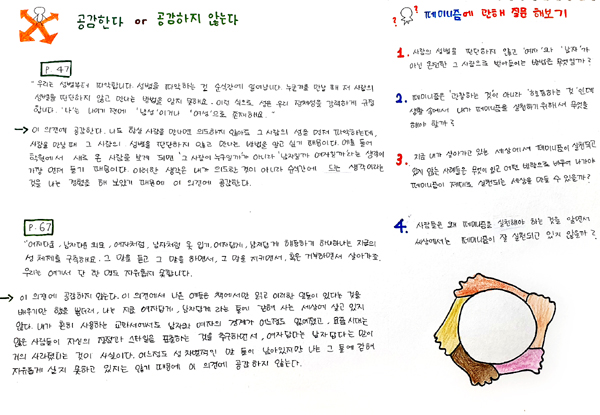 공감한다 or 공감하지 않는다
P. 47
"우리는 성별부터 파악합니다. 성별을 파악하는 건 순식간에 일어납니다. 누군가를 만날 때 저 사람의
성별을 판단하지 않고 만나는 방법을 알지 못해요. 이런 식으로 성은 우리 정체성을 강력하게 규정
합니다. '나'는 나이기 전에 '남성'이거나 '여성'으로 존재해요."
이 의견에 공감한다. 나도 항상 사람을 만나면 의도하진 않아도 그 사람의 성을 먼저 파악하는데,
사람을 만날 때 그 사람의 성별을 판단하지 않고 만나는 방법을 알고 싶기 때문이다. 예를 들어
학원에서 새로 온 사람을 보게 되면 '그 사람이 누구일까?'가 아니라 '남자일까 여자일까'하는 생각이
가장 먼저 들기 때문이다. 이러한 생각은 내가 의도한 것이 아니라 순식간에 드는 생각이라는
것을 나는 경험을 해 보았기 때문에 이 의견에 공감한다.
P. 67
"여자다움, 남자다움 외모, 여자처럼, 남자처럼 옷 입기, 여자답게, 남자답게 행동하기 하나하나는 지금의
성 체제를 구축해요. 그 말을 듣고 그 말을 하면서, 그 말을 지키면서, 혹은 거부하면서 살아가죠.
우리는 여기서 단 한 명도 자유롭지 못합니다.
이 의견에 공감하지 않는다. 이 의견에서 나온 예들은 책에서만 읽고 이러한 말들이 있다는 것을
배우기만 했을 뿐더러, 나는 지금 여자답게, 남자답게 라는 틀이 갇혀 사는 세상에 살고 있지
않다. 내가 흔히 사용하는 교과서에서도 남자와 여자의 경계가 어느정도 없어졌고, 요즘 시대는
많은 사람들이 자신의 직장과 스타일을 표출하는 것을 추구하면서, 여자답다는 남자답다는 말이
거의 사라졌다는 것이 사실이다. 어느정도 성 차별적인 말 들이 남아있지만 나는 그 틀에 갇혀
자유롭게 살지 못하고 있지는 않기 때문에 이 의견에 공감하지 않는다.
페미니즘에 관해 질문 해보기
1. 사람의 성별을 판단하지 않고 '여자'와 '남자'가
아닌 온전한 그 사람으로 받아들이는 방법은 무엇일까?
2. 페미니즘은 '관찰하는 것이 아니라 '행동하는 것'인데
생활 속에서 내가 페미니즘을 실천하기 위해서 무엇을
해야 할까?
3. 지금 내가 살아가고 있는 세상에서 페미니즘이 실천되고
있지 않는 사례들은 무엇이 있고 어떤 방향으로 바꾸어 나가야
페미니즘이 제대로 실천되는 세상을 만들 수 있을까?
4. 사람들은 왜 페미니즘을 실천해야 하는 것을 알면서
세상에서는 페미니즘이 잘 실천되고 있지 않을까?